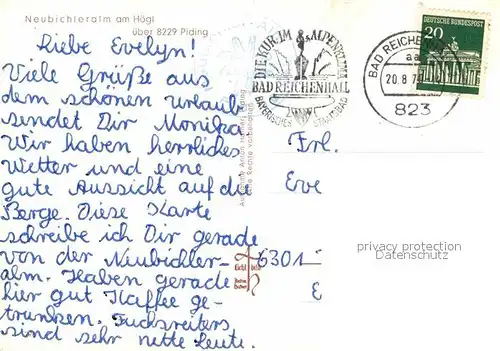 Neubichleralm am Högl
über 8229 Piding
Liebe Evelyn!
Viele Grüße aus
dem schönen Urlaub
sendet Dir Monika
Wir haben herrliches
Wetter und eine
gute Aussicht auf die
Berge. Diese Karte
schreibe ich Dir gerade
von der Neubichler-
alm. Haben gerade
hier gut Kaffee ge-
trunken. Fuchsreiters
sind sehr nette Leute.
DIE KUR IM ALPENKLIMA
BAD REICHENHALL
BAYERISCHES STAATSBAD
BAD REICHENHALL
20.8.7
823
20 DEUTSCHE BUNDESPOST
Frl.
Eve
6301
E
privacy protection
Datenschutz